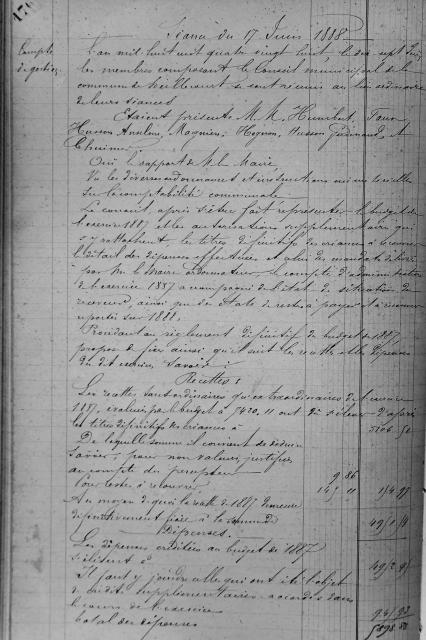 Séance du 17 Juin 1888
Compte
de gestion
L'an mil huit cent quatre vingt huit, le dix-sept Juin
les membres composant le Conseil municipal de la
commune de se sont réunis au lieu ordinaire
de leurs séances
Etaient présents M.M. Humbert,
Husson Anselme, Magnien, Husson Ferdinand,
Ouï le rapport de M. le Maire
Vu les diverses ordonnances et instructions
sur la comptabilité communale
Le conseil, après s'être fait représenter le budget de
l'exercice 1887 et les autorisations supplémentaires qui
s'y rattachent, les titres définitifs des créances à recouvrer
l'état des dépenses effectuées et celui des mandats délivrés
par M. le Maire ordonnateur, le compte d'administration
de l'exercice 1887 accompagné de l'état de situation du
receveur, ainsi que des états de restes à payer et à recouvrer
reportés sur 1888.
Procédant au règlement définitif du budget de 1887
propose de fixer ainsi qu'il suit les recettes et les dépenses
du dit exercice, Savoir :
Recettes :
Les recettes tant ordinaires qu'extraordinaires de l'exercice
1887, évaluées par le budget à 7420,11 ont dû s'élever d'après
les titres définitifs des créances à
De laquelle somme il convient de déduire
Savoir, pour non valeurs justifiées
au compte du percepteur 9 86
Pour restes à recouvrer 145 11
Au moyen de quoi la recette de 1887 demeure
définitivement fixée à la somme de
Dépenses.
Les dépenses créditées au budget de 1887
s'élèvent à
Il faut y joindre celles qui ont été l'objet
de crédits supplémentaires accordés dans
le cours de l'exercice
Total des dépenses